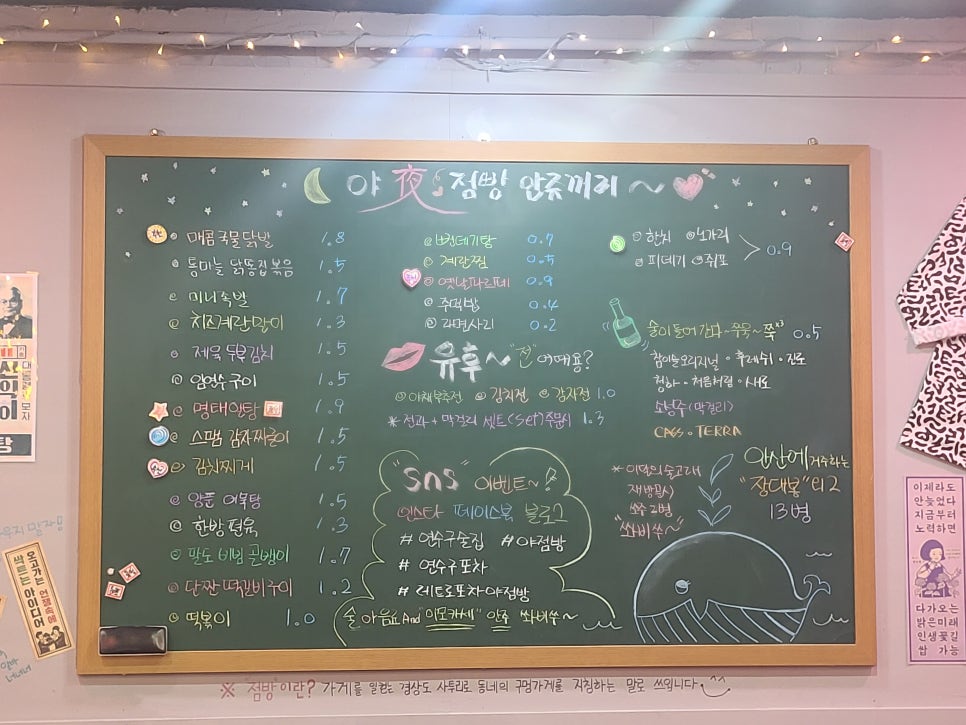 야 夜 점빵 안주꺼리 ~
매콤 국물 닭발 1.8
통마늘 닭똥집 볶음 1.5
미니족발 1.7
치즈계란말이 1.3
제육 두부김치 1.5
임연수구이 1.5
명태알탕 1.9
스팸 감자짜글이 1.5
김치찌게 1.5
얌푼 어묵탕 1.5
한방 편육 1.3
팔도 비빔 골뱅이 1.7
단짠 떡갈비구이 1.2
떡볶이 1.0
번데기탕 0.7
계란찜 0.5
옛날 0.9
주먹밥 0.4
라면사리 0.2
한치 노가리
피데기 쥐포 > 0.9
유후~ "전" 어때용?
야채부추전 김치전 감자전 1.0
* 전과 + 막걸리 세트(Set) 주문시 1.3
술이 들어간다~ 쭈욱~ 쭉 x3 0.5
참이슬오리지널 · 후레쉬 · 진로
청하 · 처음처럼 · 새로
소성주(막걸리)
CASS · TERRA
"SNS" 이벤트~!
인스타 페이스북 블로그
# 연수구술집 # 야점방
# 연수구포차
# 레트로포차야점방
술 아음료 And "이모카세" 안주 쏴비쓰~
* 이덕의 술고래
재방문시
쏘주 2병
"쏴비쑤~"
안산에 거주하는
"장대봉" 리 2
13병
※ "점빵"이란? 가게를 일컫는 경상도 사투리로 동네의 구멍가게를 지칭하는 말로 쓰입니다
오고가는 언쟁속에
싹트는 아이디어
이제라도
안늦었다
지금부터
노력하면
다가오는
밝은미래
인생꽃길
쌉 가능